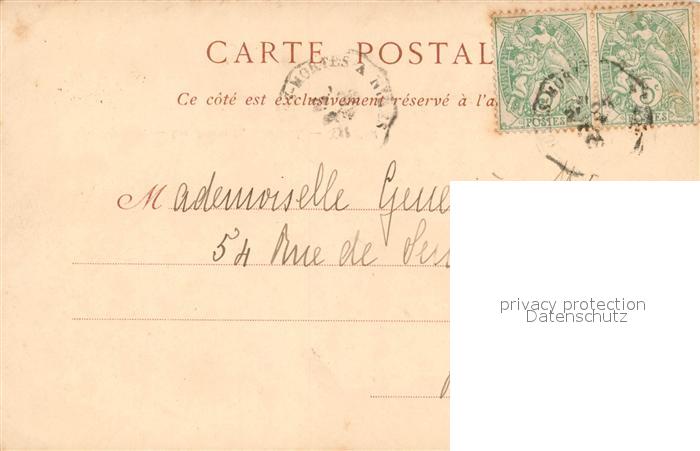 CARTE POSTAL
Ce côté est exclusivement réservé à l'a
-MORTES A NIMES
POSTES
5c
Mademoiselle Gene
54 Rue de
privacy protection
Datenschutz